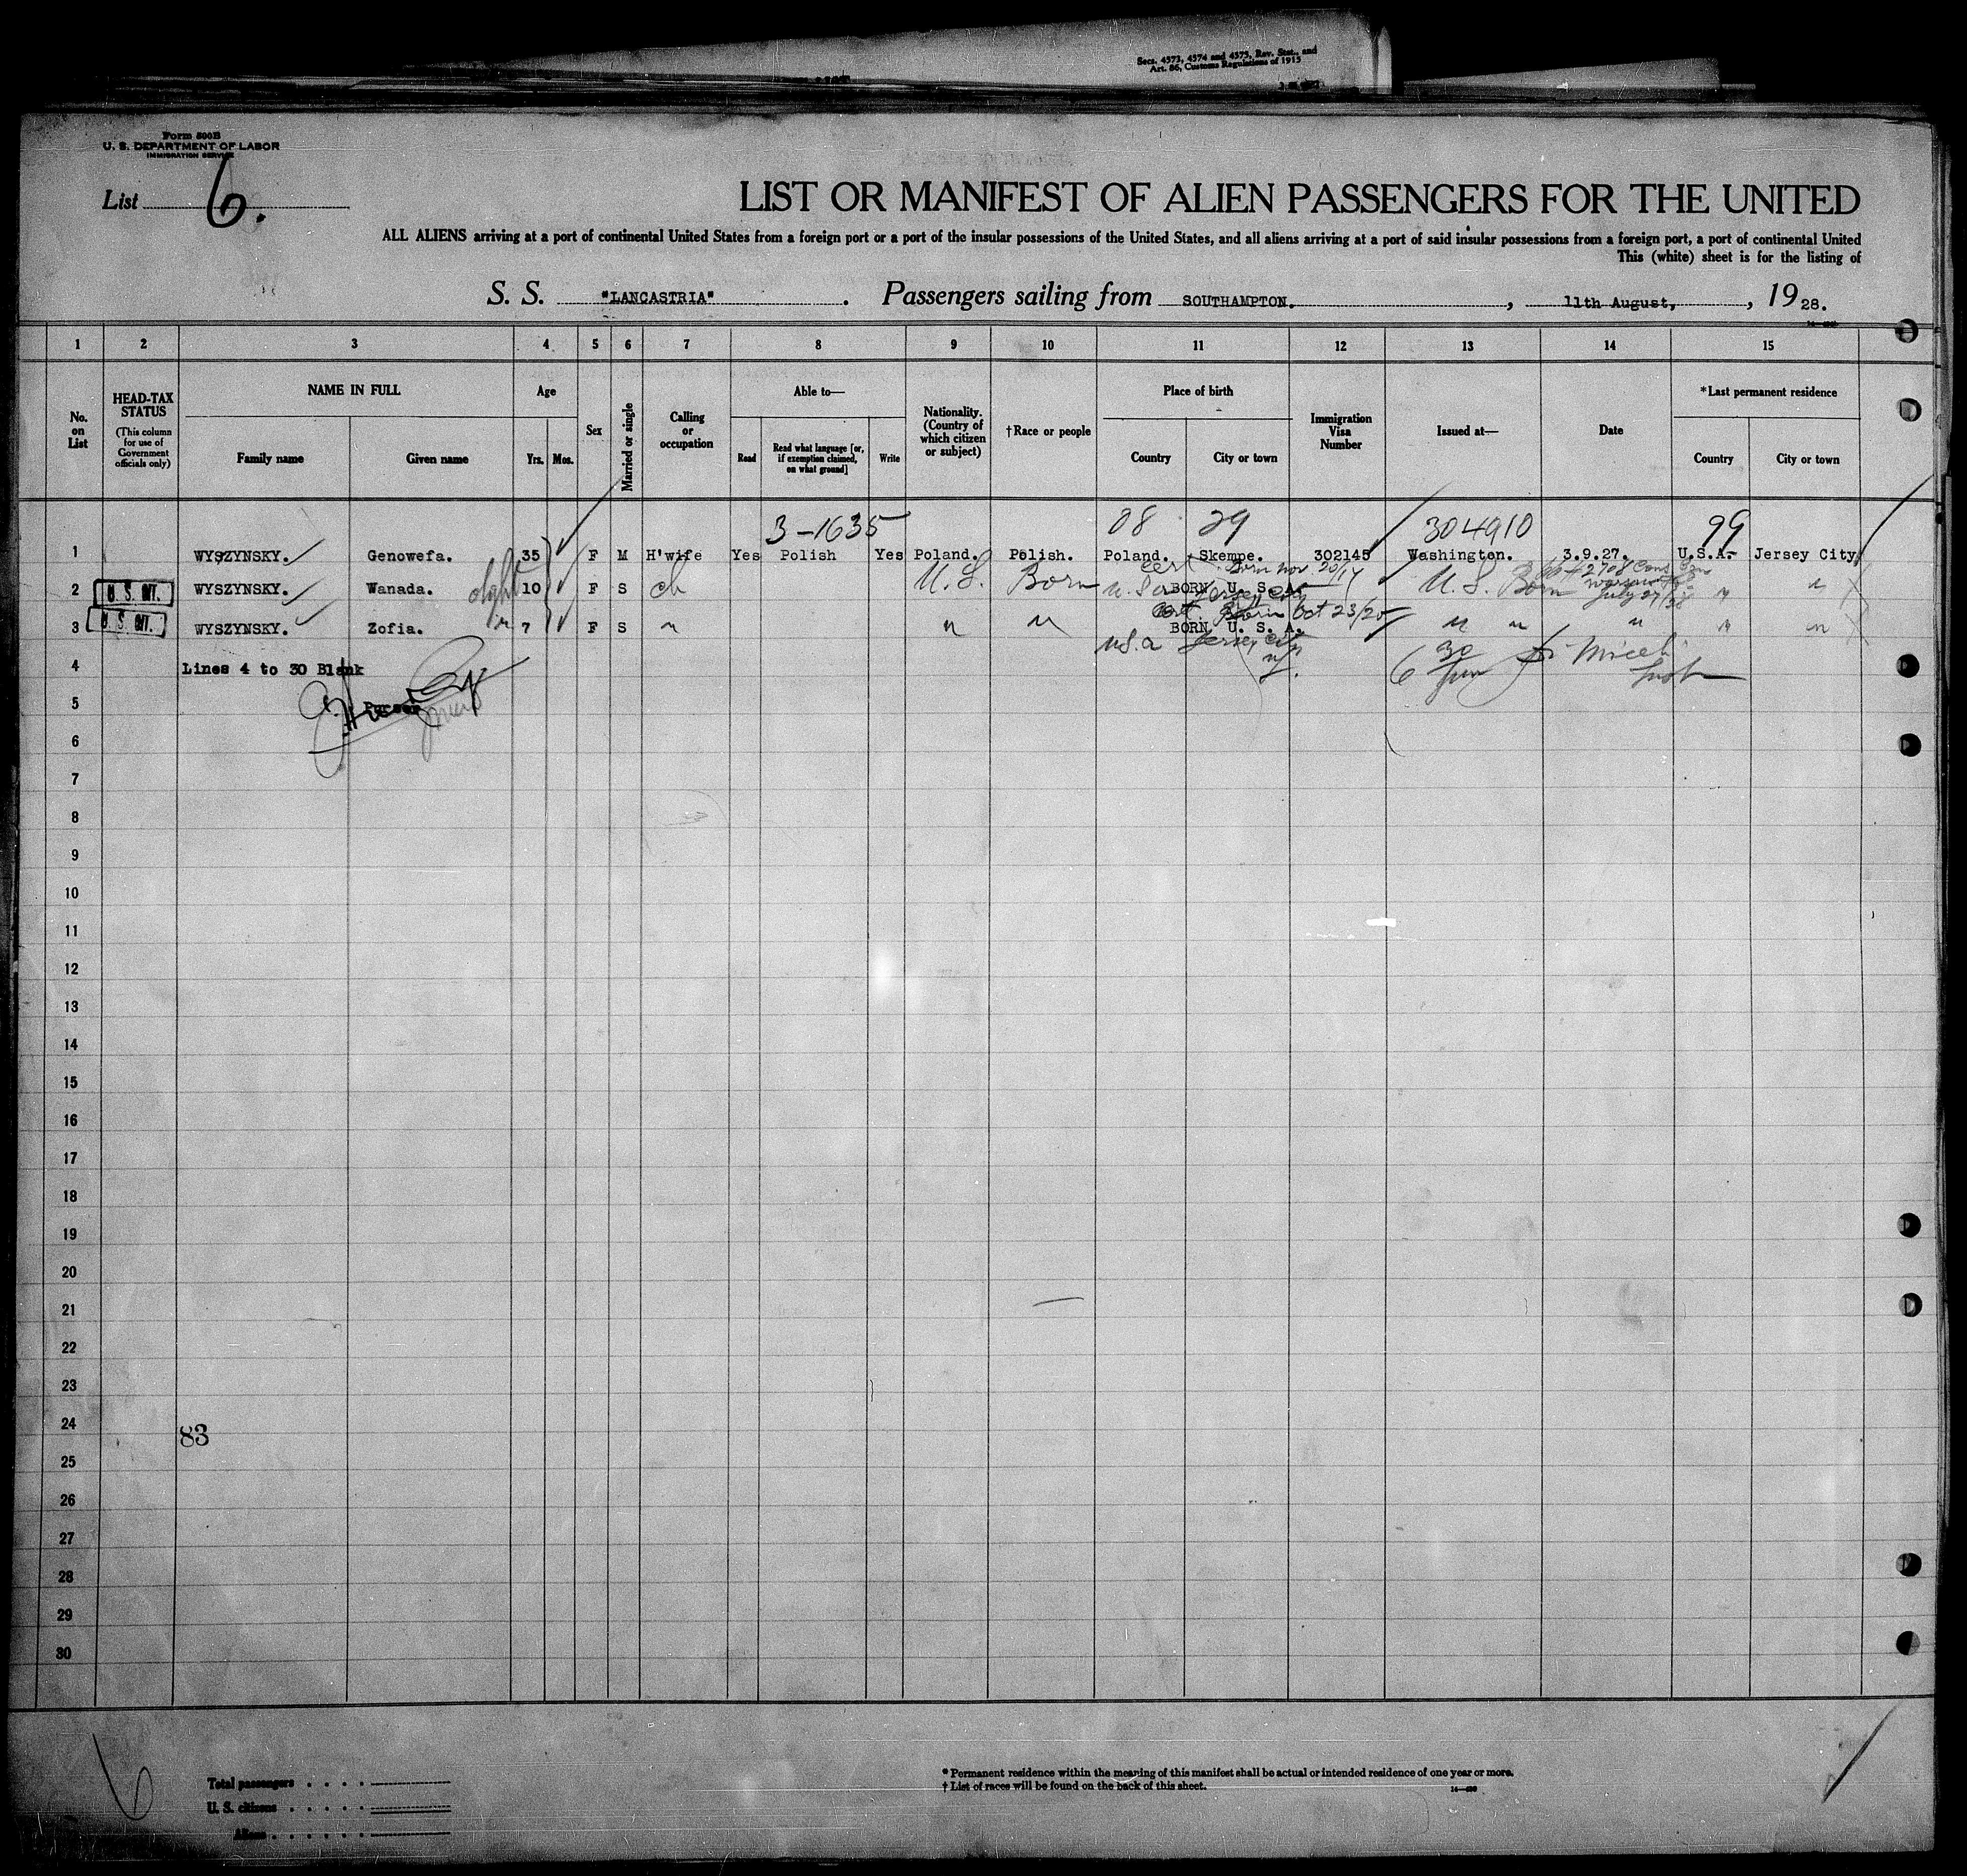 Secs. 4573, 4574 and 4575, Rev. Stat., and
Art. 86, Customs Regulations of 1915
Form 500B
U. S. DEPARTMENT OF LABOR
IMMIGRATION SERVICE
List 6.
LIST OR MANIFEST OF ALIEN PASSENGERS FOR THE UNITED
ALL ALIENS arriving at a port of continental United States from a foreign port or a port of the insular possessions of the United States, and all aliens arriving at a port of said insular possessions from a foreign port, a port of continental United
This (white) sheet is for the listing of
S. S. "LANCASTRIA". Passengers sailing from SOUTHAMPTON., 11th August, , 1928.
1 2 3 4 5 6 7 8 9 10 11 12 13 14 15
No. on List
HEAD-TAX STATUS
(This column for use of Government officials only)
NAME IN FULL
Family name Given name
Age
Yrs. Mos.
Sex
Married or single
Calling or occupation
Able to—
Read Read what language [or, if exemption claimed, on what ground] Write
Nationality. (Country of which citizen or subject)
†Race or people
Place of birth
Country City or town
Immigration Visa Number
Issued at—
Date
*Last permanent residence
Country City or town
3-1635 08 29 304910 99
1 WYSZYNSKY. Genowefa. 35 F M H'wife Yes Polish Yes Poland. Polish. Poland. Skempe. 302145 Washington. 3.9.27. U.S.A. Jersey City
cert Born Nov 20/17
2708 Cons
2 U. S. CIT. WYSZYNSKY. Wanada. 10 F S ch U.S. Born BORN U. S. A. U.S. Born Warsaw " "
Jersey City
July 27/28
Cert Born Oct 23/20
3 U. S. CIT. WYSZYNSKY. Zofia. " 7 F S " " " BORN U. S. A. " " " " "
USA Jersey City NJ.
4 Lines 4 to 30 Blank
5 Purser
6
7
8
9
10
11
12
13
14
15
16
17
18
19
20
21
22
23
24
83
25
26
27
28
29
30
6
Total passengers
U. S. citizens
Aliens
* Permanent residence within the meaning of this manifest shall be actual or intended residence of one year or more.
† List of races will be found on the back of this sheet.